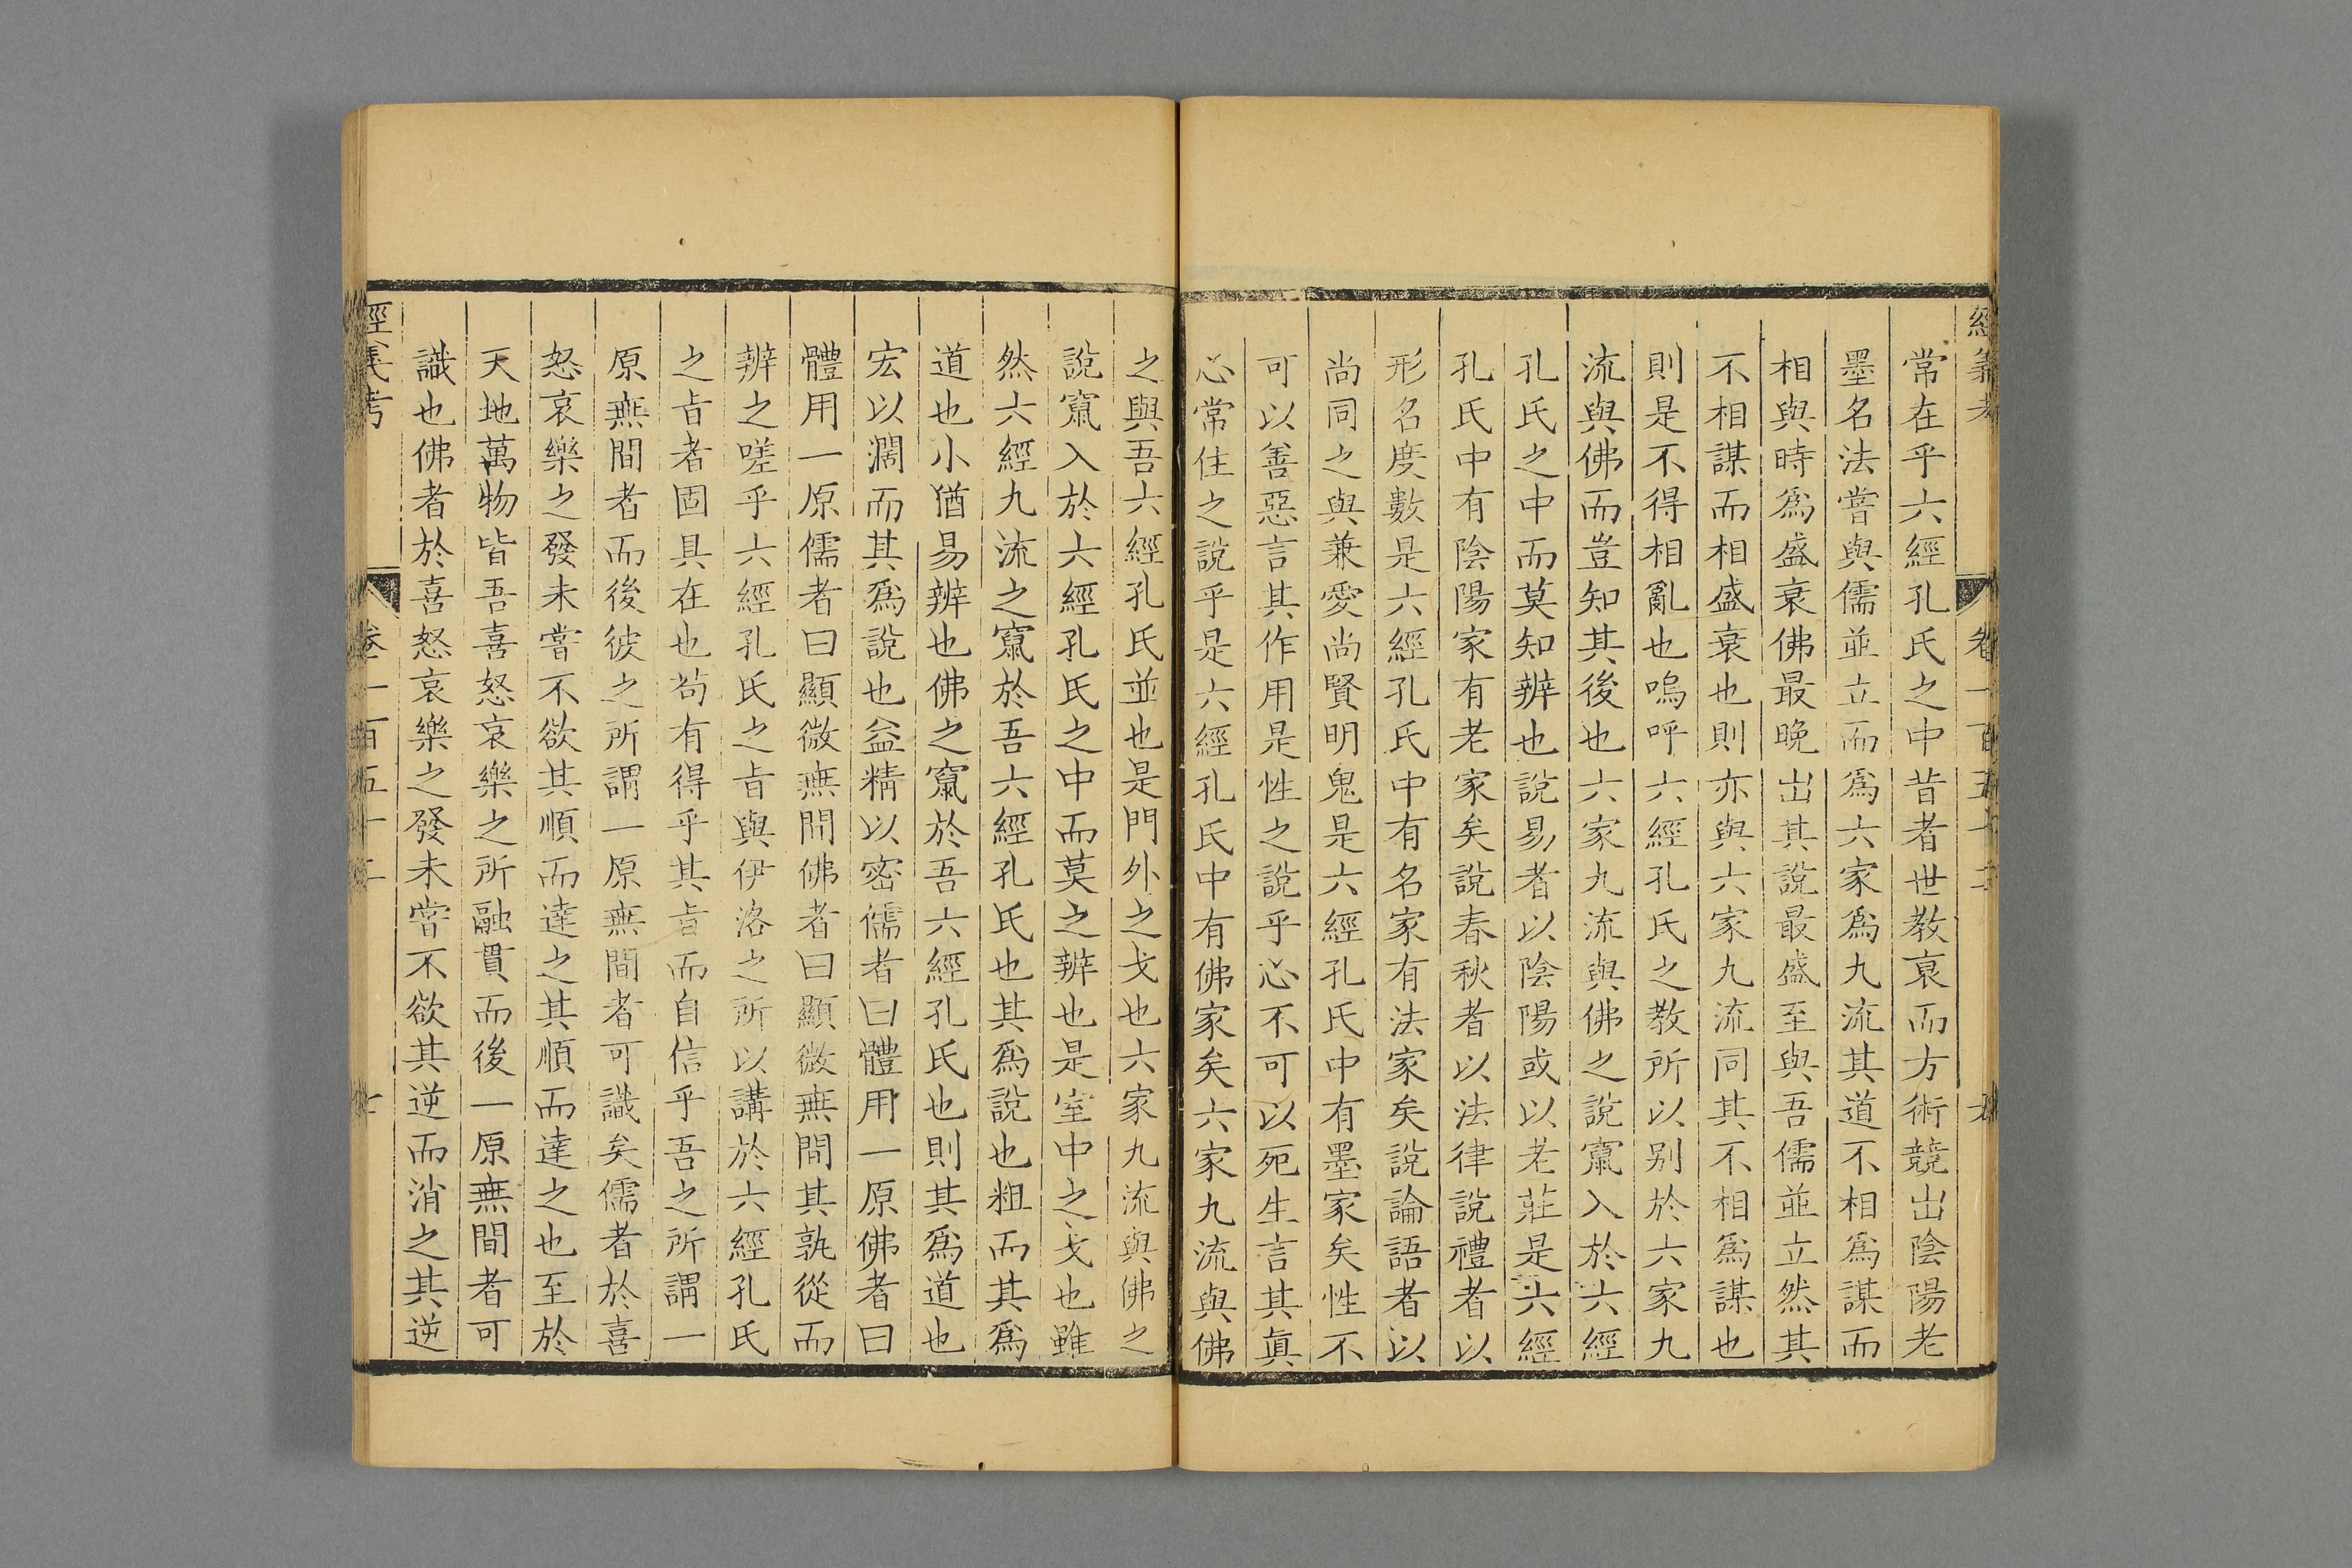 經義考 卷一百五十二
常在乎六經孔氏之中昔者世教衰而方術競出陰陽老
墨名法嘗與儒並立而為六家為九流其道不相為謀而
相與時為盛衰佛最晚出其說最盛至與吾儒並立然其
不相謀而相盛衰也則亦與六家九流同其不相為謀也
則是不得相亂也嗚呼六經孔氏之教所以别於六家九
流與佛而豈知其後也六家九流與佛之說竄入於六經
孔氏之中而莫知辨也說易者以陰陽或以老莊是六經
孔氏中有陰陽家有老家矣說春秋者以法律說禮者以
形名度數是六經孔氏中有名家有法家矣說論語者以
尚同之與兼愛尚賢明鬼是六經孔氏中有墨家矣性不
可以善惡言其作用是性之說乎心不可以死生言其真
心常住之說乎是六經孔氏中有佛家矣六家九流與佛
之與吾六經孔氏並也是門外之戈也六家九流與佛之
說竄入於六經孔氏之中而莫之辨也是室中之戈也雖
然六經九流之竄於吾六經孔氏也其為說也粗而其為
道也小猶易辨也佛之竄於吾六經孔氏也則其為道也
宏以濶而其為說也益精以密儒者曰體用一原佛者曰
體用一原儒者曰顯微無間佛者曰顯微無間其孰從而
辨之嗟乎六經孔氏之旨與伊洛之所以講於六經孔氏
之旨者固具在也茍有得乎其旨而自信乎吾之所謂一
原無間者而後彼之所謂一原無間者可識矣儒者於喜
怒哀樂之發未嘗不欲其順而達之其順而達之也至於
天地萬物皆吾喜怒哀樂之所融貫而後一原無間者可
識也佛者於喜怒哀樂之發未嘗不欲其逆而消之其逆
經義考 卷一百五十二 七